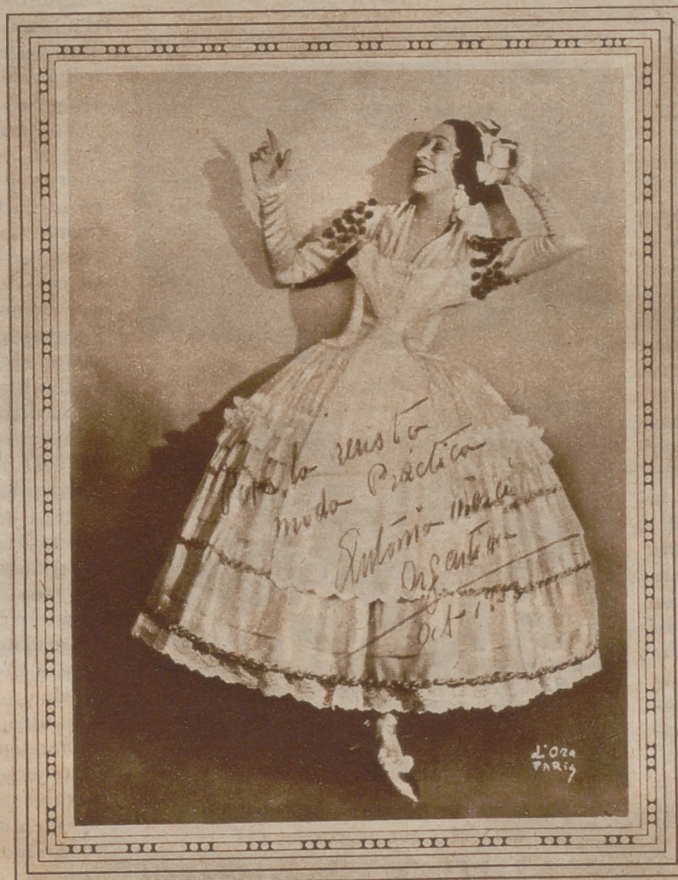 Para la revista
moda Práctica
Antonia Mercé
Argentina
Oct 1933
d'Ora
PARIS